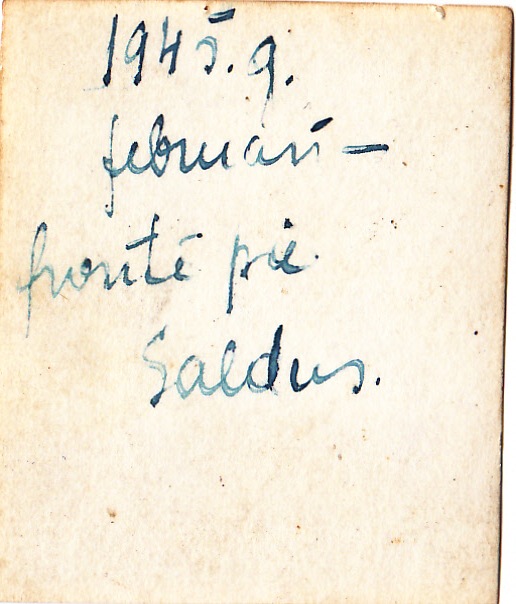 1945. g.
februarī —
frontē pie
Saldus.